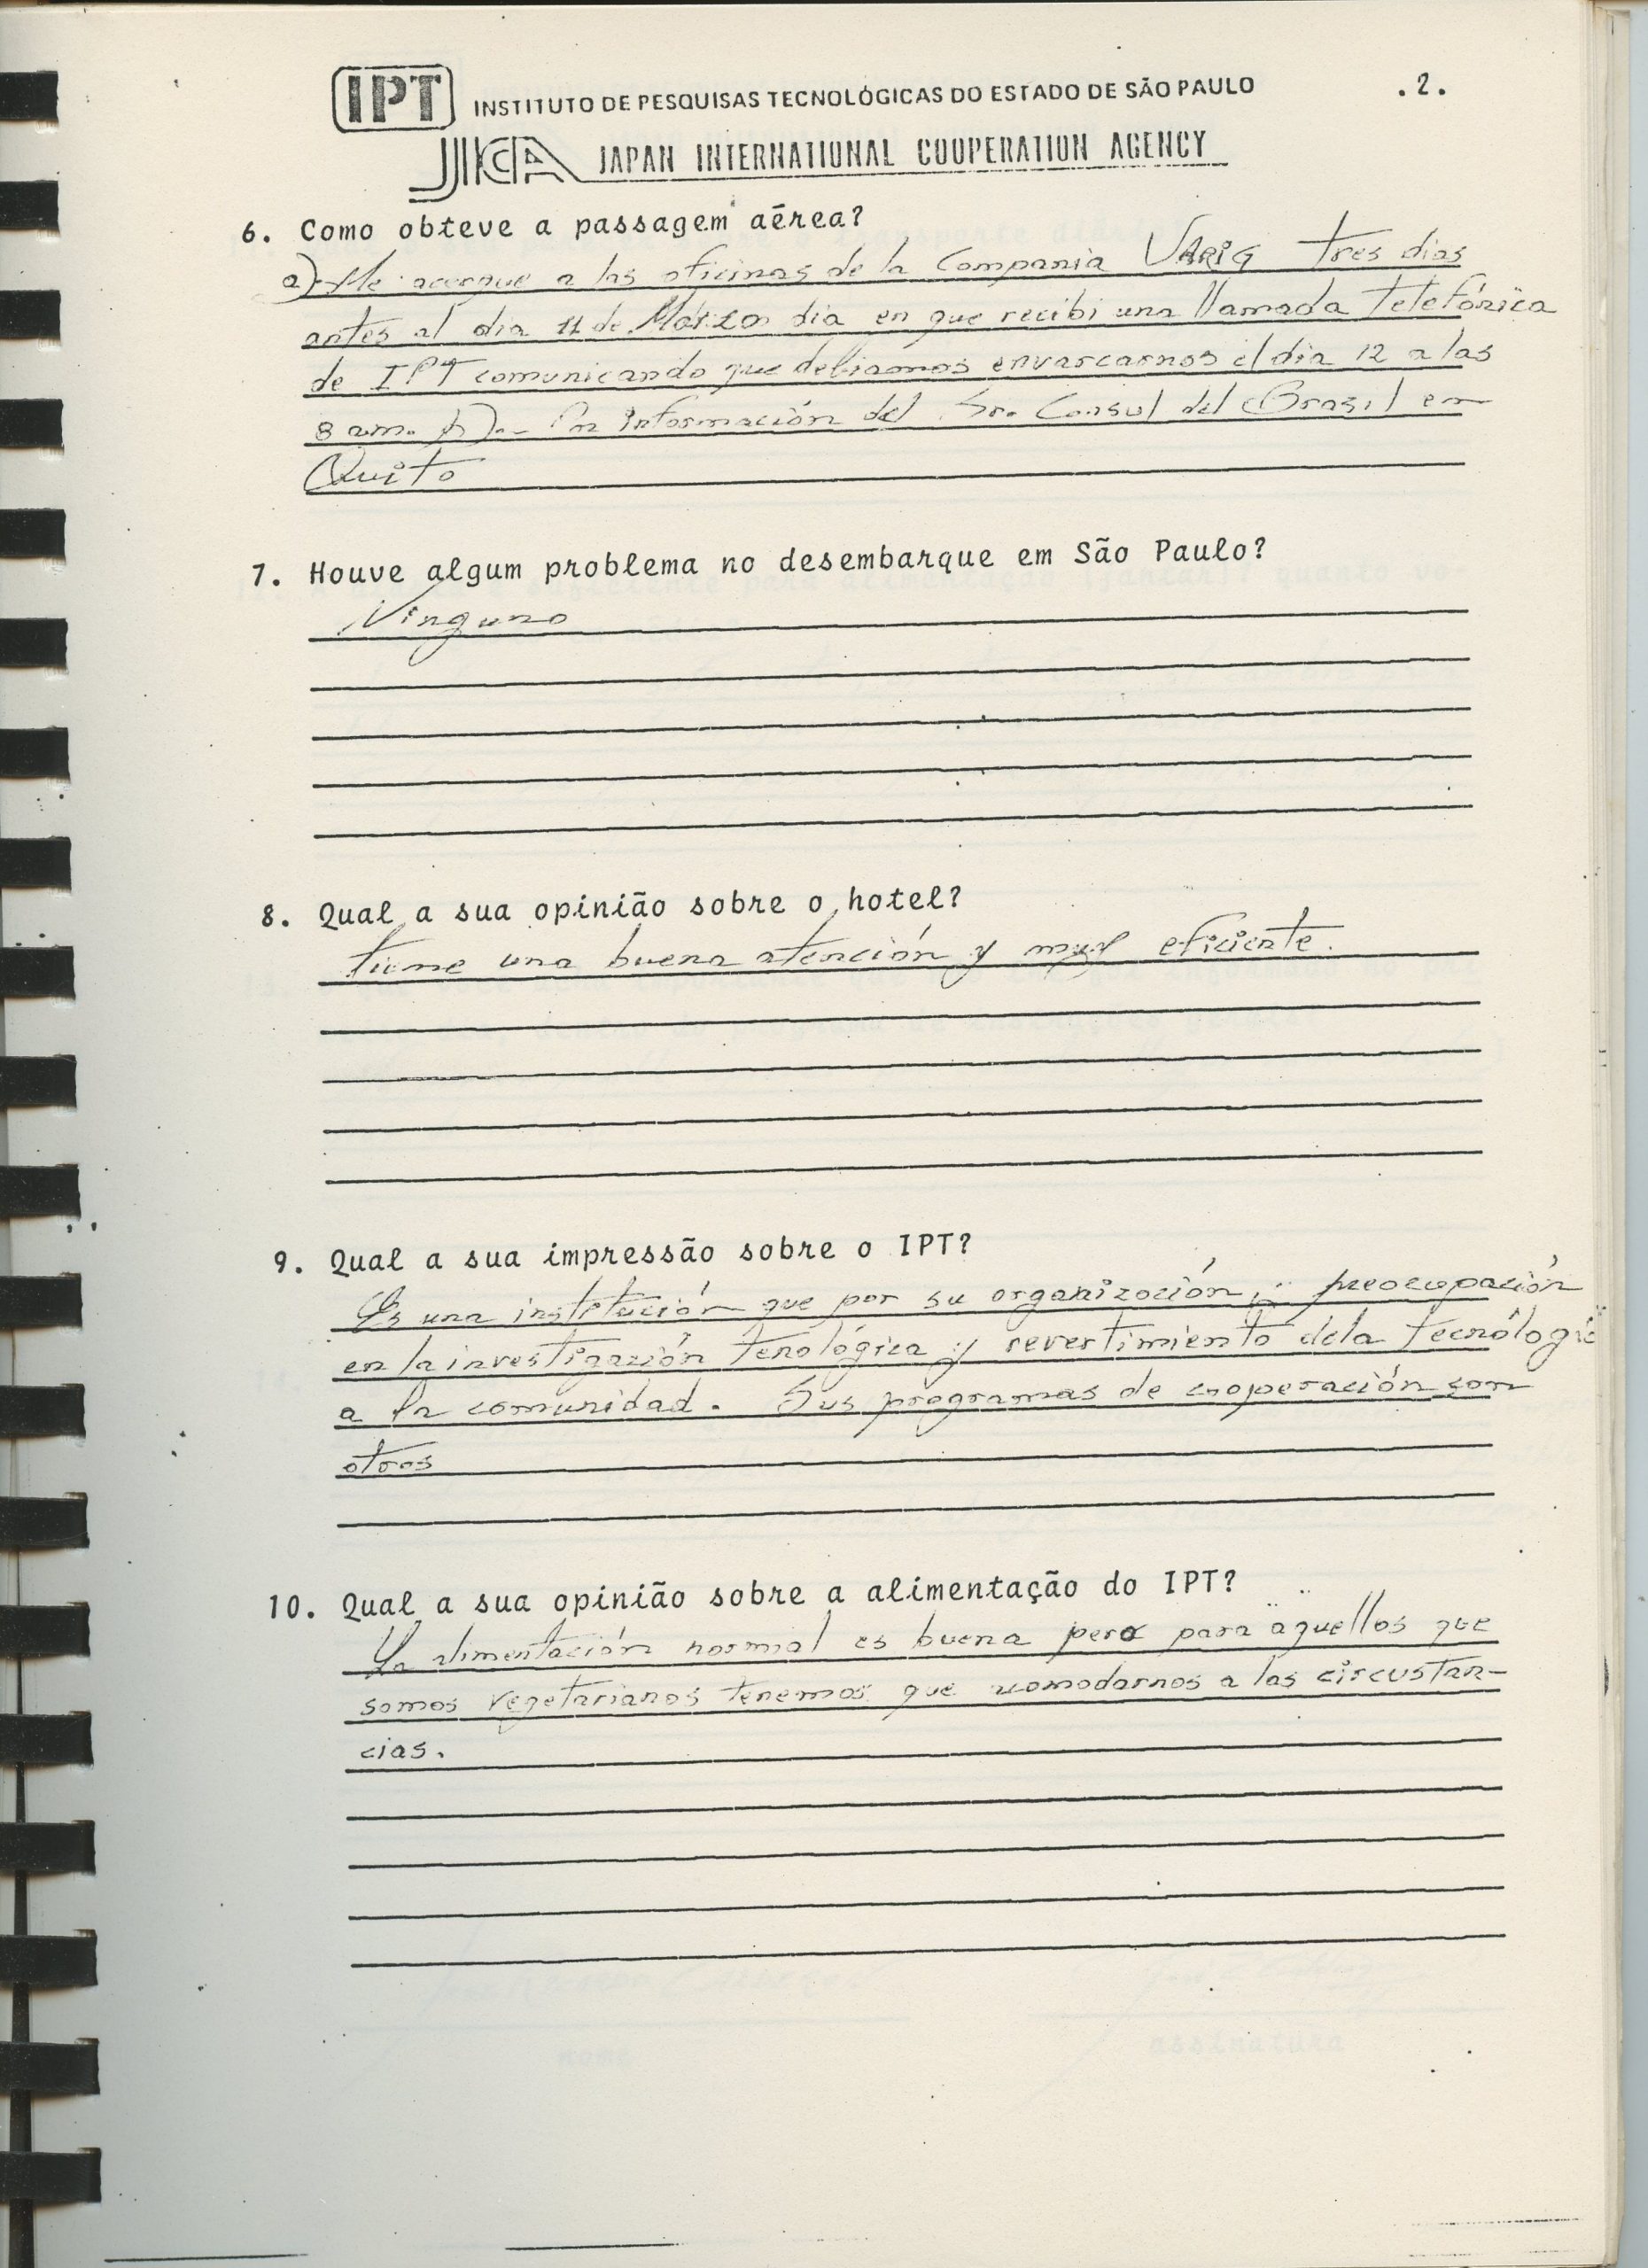 IPT INSTITUTO DE PESQUISAS TECNOLÓGICAS DO ESTADO DE SÃO PAULO .2.
JICA JAPAN INTERNATIONAL COOPERATION AGENCY
6. Como obteve a passagem aérea?
a)- Me acerque a las oficinas de la Compania VARIG tres dias
antes al dia 11 de Marzo dia en que recibi una llamada telefónica
de IPT comunicando que debiamos envarcarnos el dia 12 a las
8 am. b).- Por información del Sr. Consul del Brasil en
Quito
7. Houve algum problema no desembarque em São Paulo?
Ninguno
8. Qual a sua opinião sobre o hotel?
tiene una buena atención y muy eficiente.
9. Qual a sua impressão sobre o IPT?
Es una institución que por su organización, preocupación
en la investigación tenológica y revertimiento dela tecnólogic
a la comunidad. Sus programas de cooperación con
otros
10. Qual a sua opinião sobre a alimentação do IPT?
La alimentación normal es buena pero para aquellos que
somos vegetarianos tenemos que acomodarnos a las circustan-
cias.